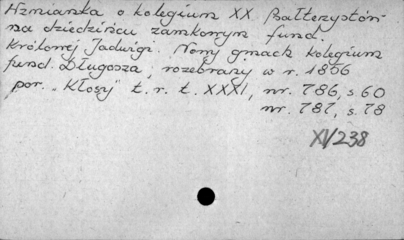 Wzmianka o kolegium XX Psałterzystów
na dziedzińcu zamkowym fund.
Królowej Jadwigi. Nowy gmach kolegium
fund. Długosza, rozebrany w r. 1856
por. "Kłosy" t. r. t. XXXI, nr. 786, s 60
nr. 787, s. 78
XI/238